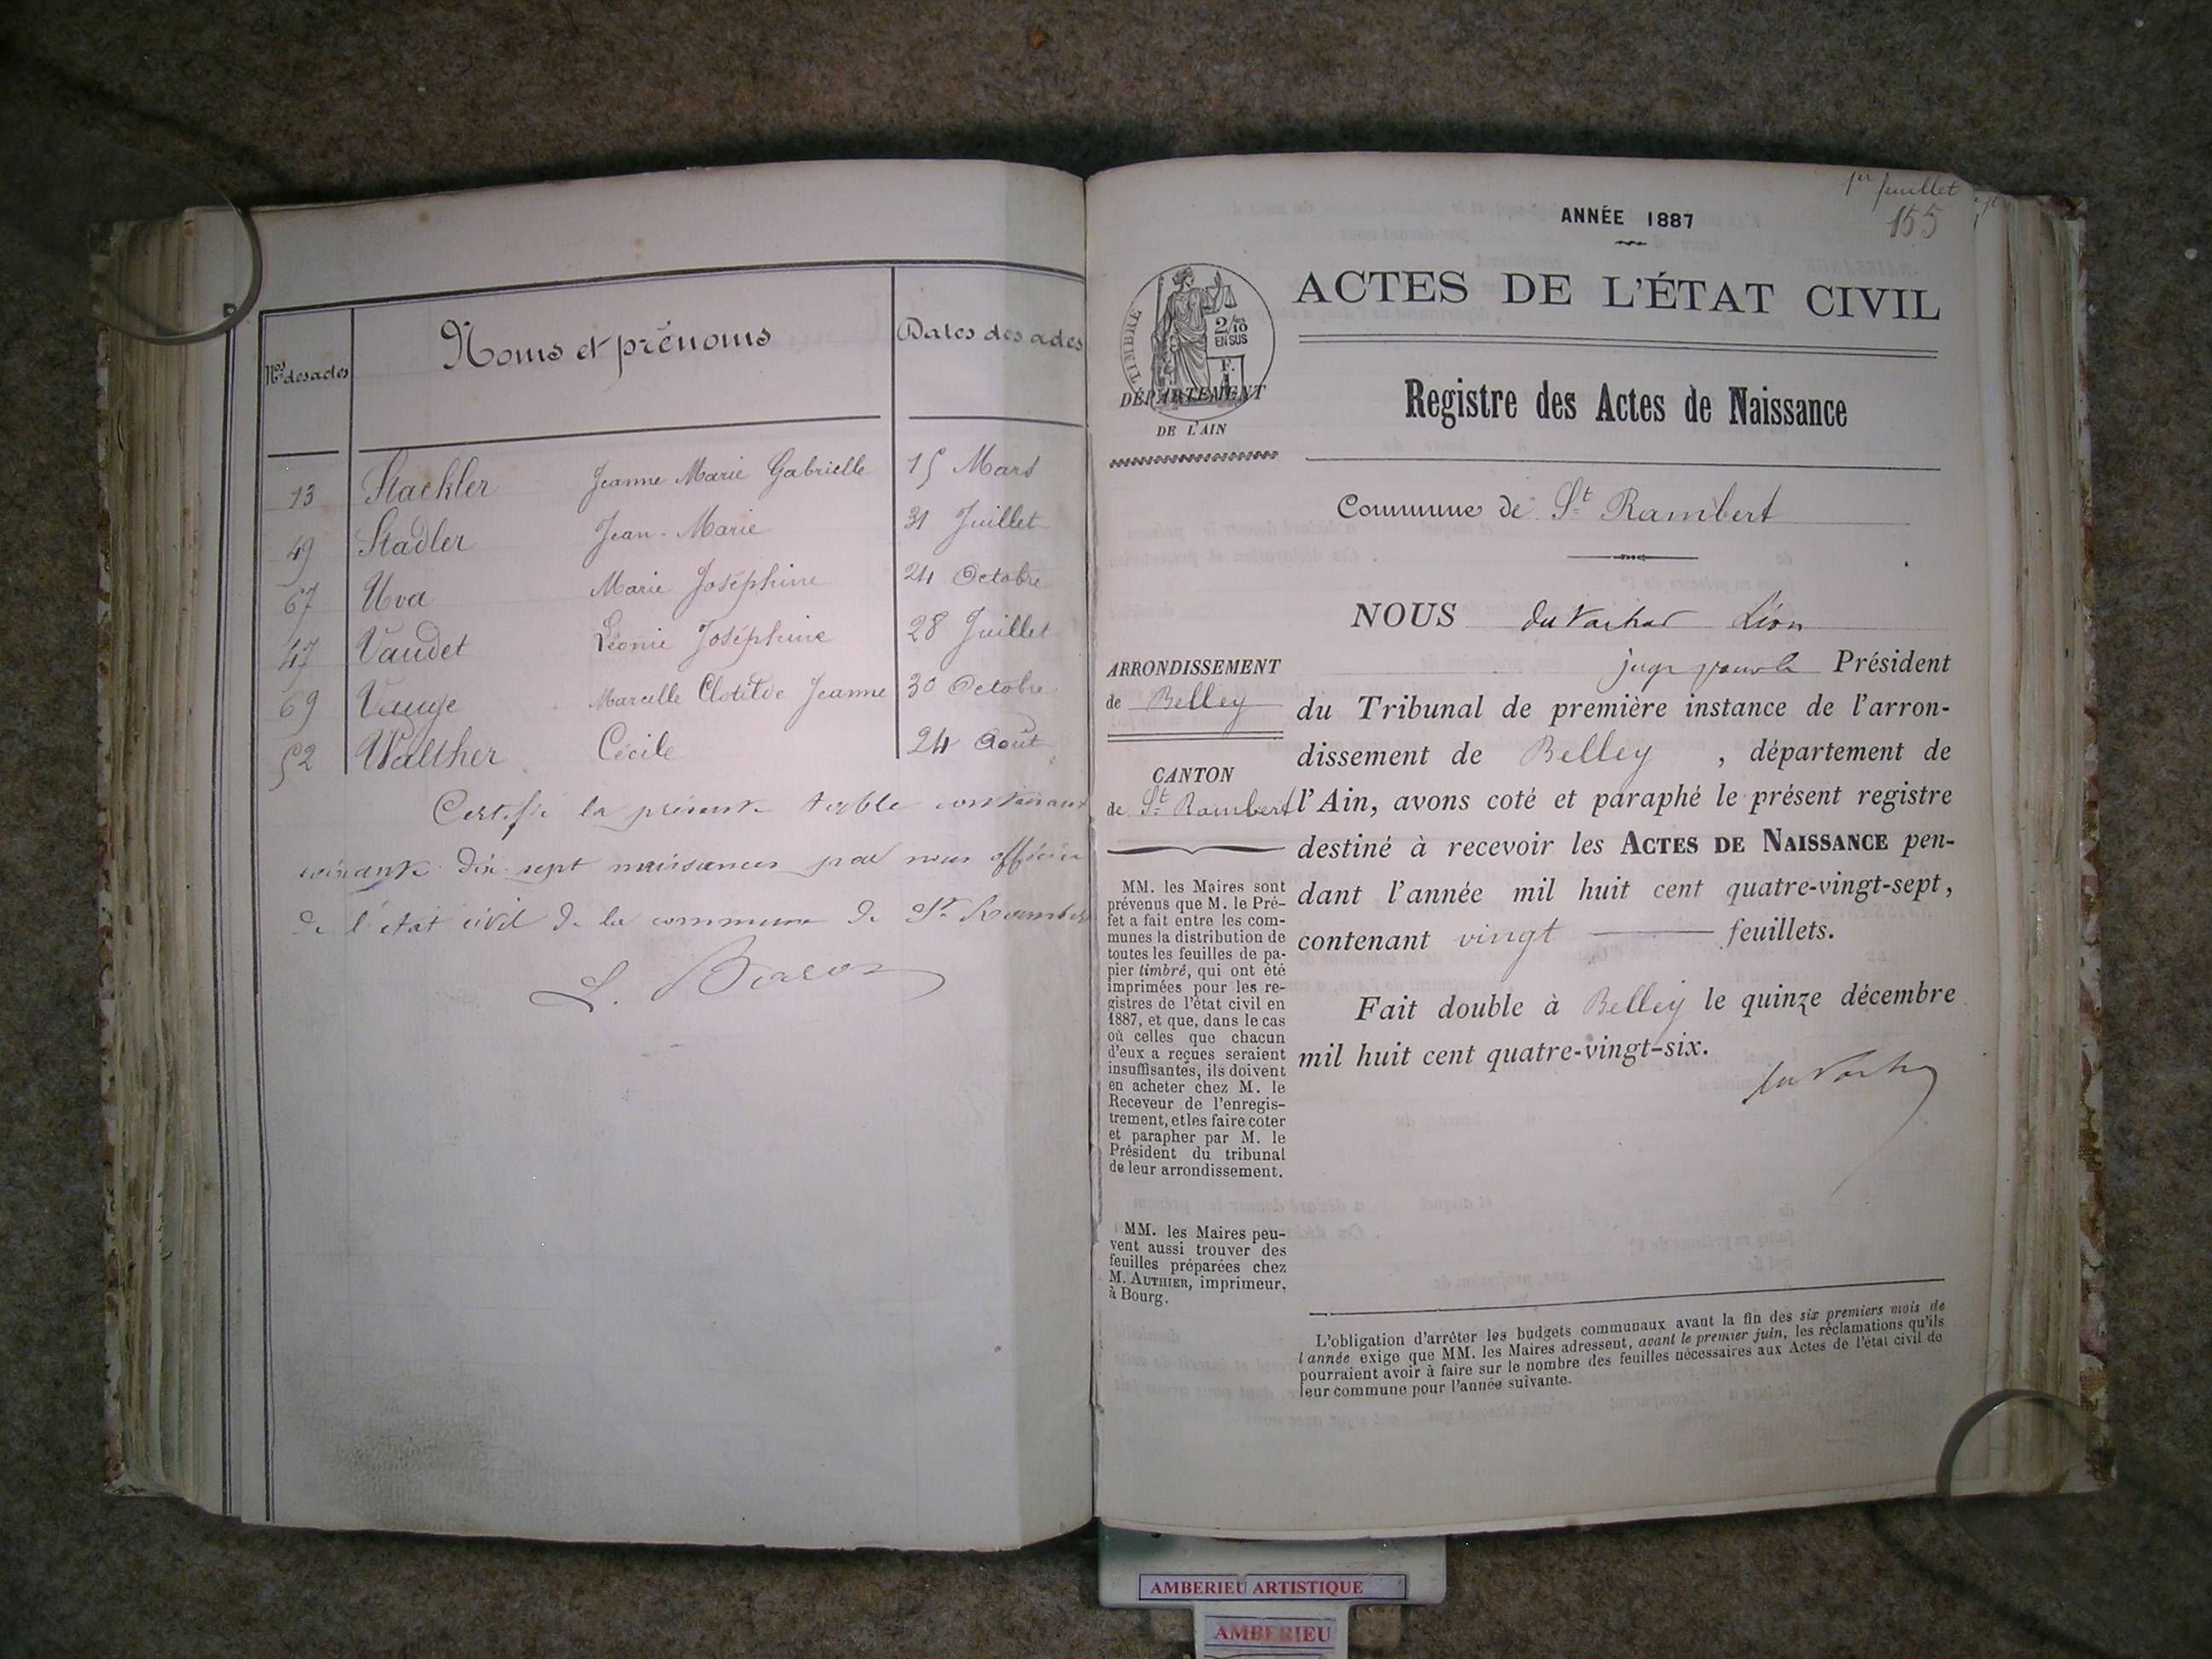 Nos des actes
Noms et prénoms
Dates des actes
13 Stackler Jeanne Marie Gabrielle 15 Mars
49 Stadler Jean-Marie 31 Juillet
67 Uva Marie Joséphine 24 Octobre
47 Vaudet Léonie Joséphine 28 Juillet
69 Marcelle Clotilde Jeanne 30 Octobre
52 Walther Cécile 24 Août
Certifié la présente table contenant
dix sept naissances par nous officier
de l'état civil de la commune de St Rambert
L.
1er feuillet
155
ANNÉE 1887
ACTES DE L'ÉTAT CIVIL
TIMBRE
2/10
EN SUS
F.
1
DÉPARTEMENT
DE L'AIN
Registre des Actes de Naissance
Commune de St Rambert
NOUS Léon
juge pour le Président
du Tribunal de première instance de l'arron-
dissement de Belley , département de
l'Ain, avons coté et paraphé le présent registre
destiné à recevoir les ACTES DE NAISSANCE pen-
dant l'année mil huit cent quatre-vingt-sept,
contenant vingt feuillets.
Fait double à Belley le quinze décembre
mil huit cent quatre-vingt-six.
ARRONDISSEMENT
de Belley
CANTON
de St Rambert
MM. les Maires sont
prévenus que M. le Pré-
fet a fait entre les com-
munes la distribution de
toutes les feuilles de pa-
pier timbré, qui ont été
imprimées pour les re-
gistres de l'état civil en
1887, et que, dans le cas
où celles que chacun
d'eux a reçues seraient
insuffisantes, ils doivent
en acheter chez M. le
Receveur de l'enregis-
trement, et les faire coter
et parapher par M. le
Président du tribunal
de leur arrondissement.
MM. les Maires peu-
vent aussi trouver des
feuilles préparées chez
M. AUTHIER, imprimeur,
à Bourg.
L'obligation d'arrêter les budgets communaux avant la fin des six premiers mois de
l'année exige que MM. les Maires adressent, avant le premier juin, les réclamations qu'ils
pourraient avoir à faire sur le nombre des feuilles nécessaires aux Actes de l'état civil de
leur commune pour l'année suivante.
AMBERIEU ARTISTIQUE
AMBERIEU